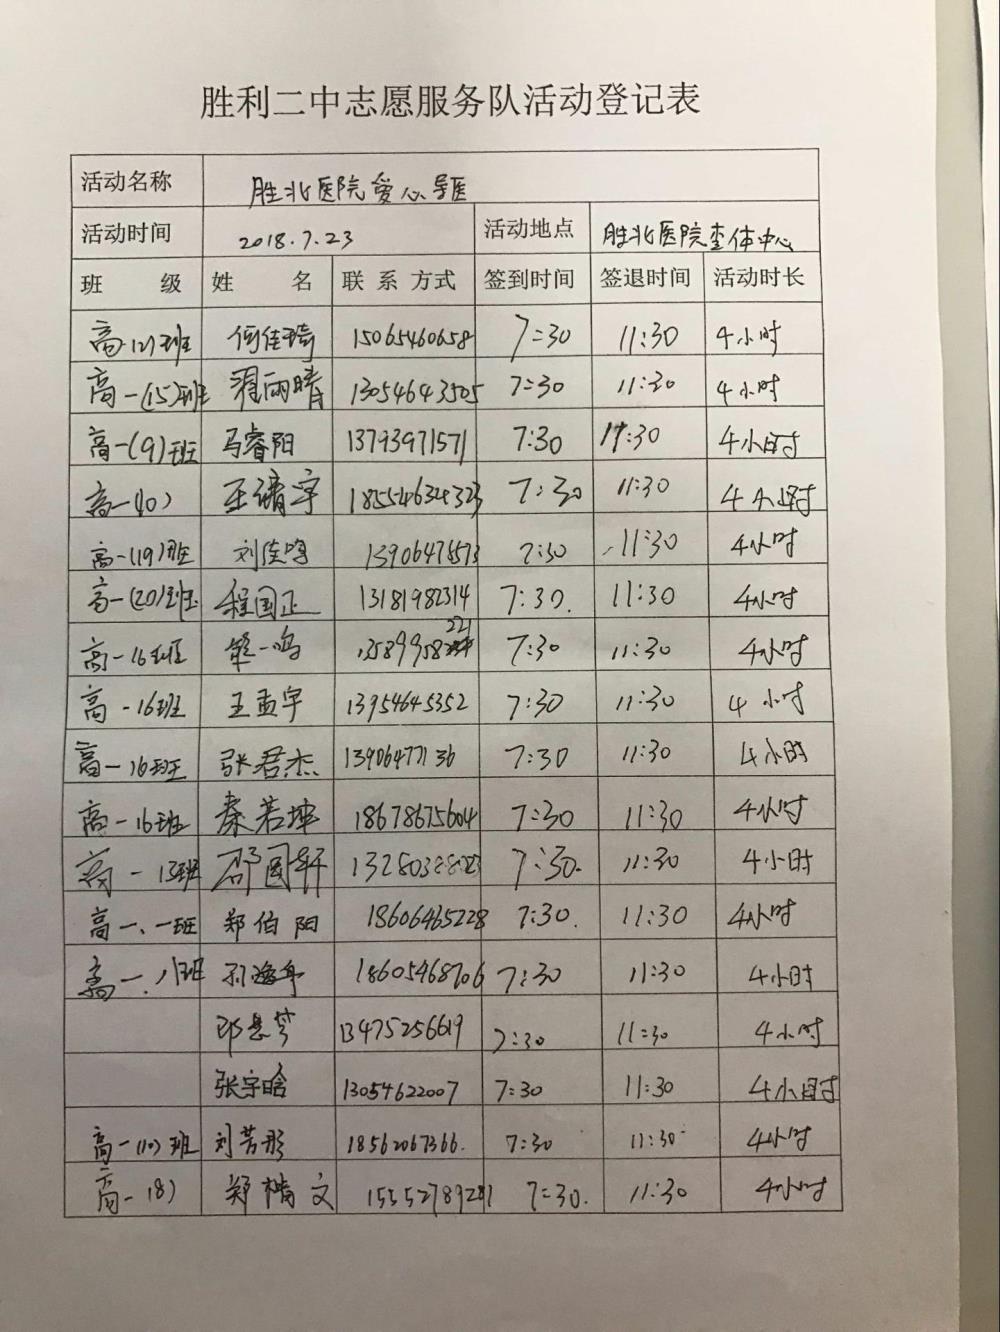 胜利二中志愿服务队活动登记表
活动名称 胜北医院爱心导医
活动时间 2018.7.23 活动地点 胜北医院查体中心
班 级 姓 名 联 系 方式 签到时间 签退时间 活动时长
高一(2)班 何佳琦 15065460658 7:30 11:30 4小时
高一(15)班 雨晴 13054643505 7:30 11:30 4小时
高一(9)班 马睿阳 13793971571 7:30 11:30 4小时
高一(10) 王靖宇 18554634323 7:30 11:30 4小时
高一(19)班 刘佳鸣 7:30 11:30 4小时
高一(20)班 程国正 13181982314 7:30. 11:30 4小时
高一16班 一鸣 7:30 11:30 4小时
高一16班 王孟宇 13954645352 7:30 11:30 4小时
高一16班 张君杰 13906477136 7:30 11:30 4小时
高一16班 秦若坤 18678675604 7:30 11:30 4小时
高一13班 邵国轩 7:30. 11:30 4小时
高一、一班 郑伯阳 18606465228 7:30. 11:30 4小时
高一.八班 18605468706 7:30 11:30 4小时
13475256619 7:30 11:30 4小时
张宇晗 13054622007 7:30 11:30 4小时
高一(10)班 刘芳彤 18562067366. 7:30 11:30 4小时
高一(8) 郑楷文 7:30. 11:30 4小时